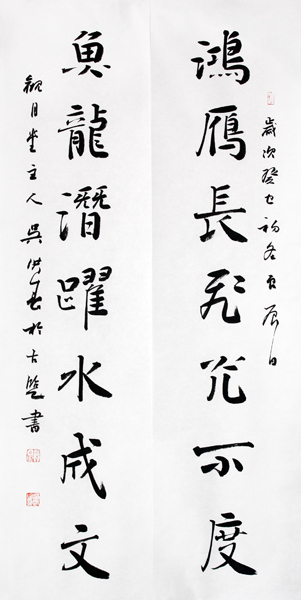 歲次癸巳初冬良辰日
鴻鴈長飛光不度
魚龍潛躍水成文
觀月堂主人吳洪於古書